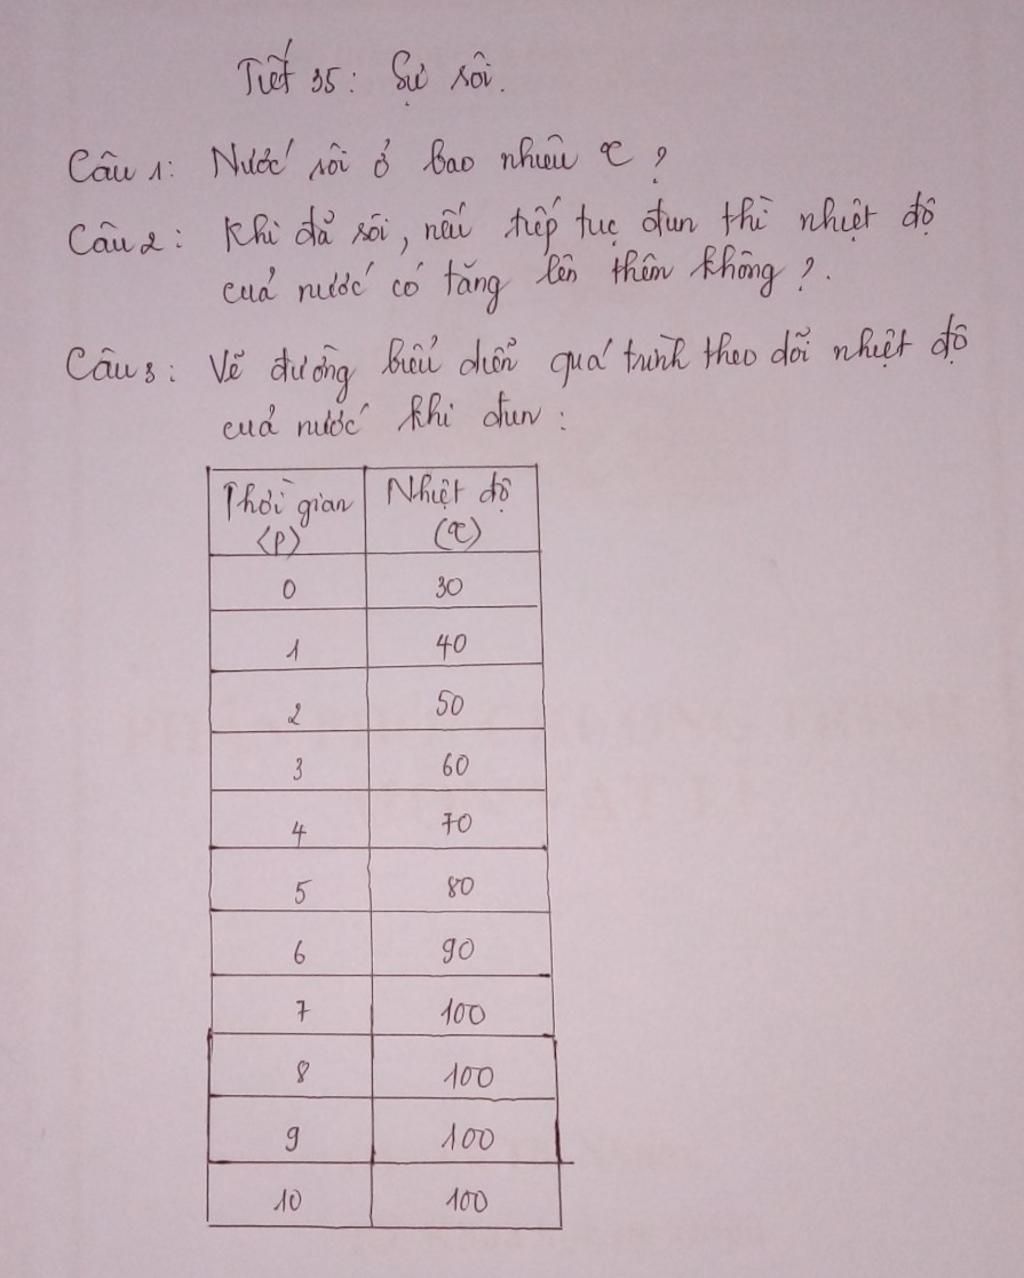 Tiết 35: Sự sôi.
Câu 1: Nước sôi ở bao nhiêu °C ?
Câu 2: Khi đã sôi, nếu tiếp tục đun thì nhiệt độ
của nước có tăng lên thêm không ?.
Câu 3: Vẽ đường biểu diễn quá trình theo dõi nhiệt độ
của nước khi đun :
Thời gian Nhiệt độ
(P) (°C)
0 30
1 40
2 50
3 60
4 70
5 80
6 90
7 100
8 100
9 100
10 100